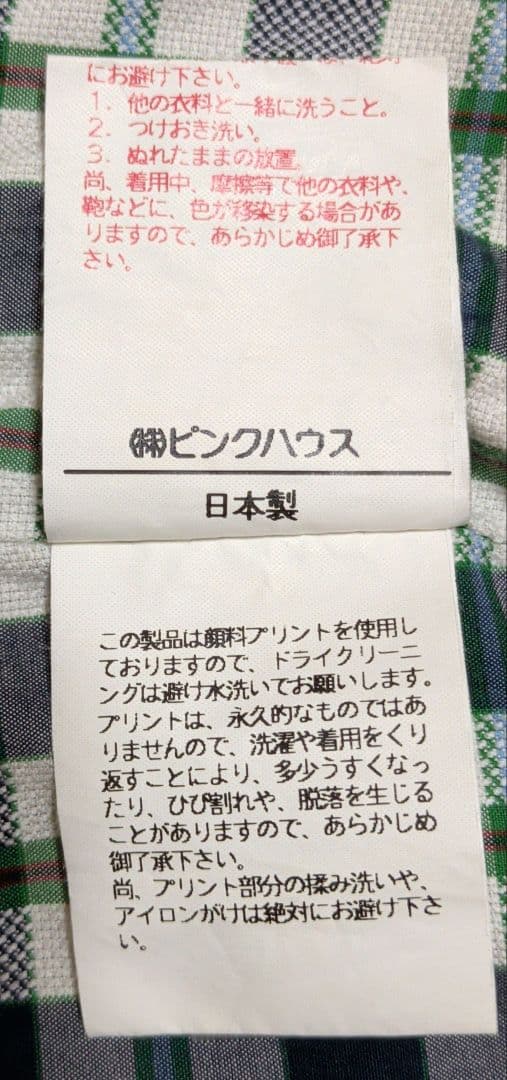 にお避け下さい。
1. 他の衣料と一緒に洗うこと。
2. つけおき洗い。
3. ぬれたままの放置
尚、着用中、摩擦等で他の衣料や、
鞄などに、色が移染する場合があ
りますので、あらかじめ御了承下
さい。
㈱ピンクハウス
日本製
この製品は顔料プリントを使用し
ておりますので、ドライクリーニ
ングは避け水洗いでお願いします。
プリントは、永久的なものではあ
りませんので、洗濯や着用をくり
返すことにより、多少うすくなっ
たり、ひび割れや、脱落を生じる
ことがありますので、あらかじめ
御了承下さい。
尚、プリント部分の揉み洗いや、
アイロンがけは絶対にお避け下さ
い。